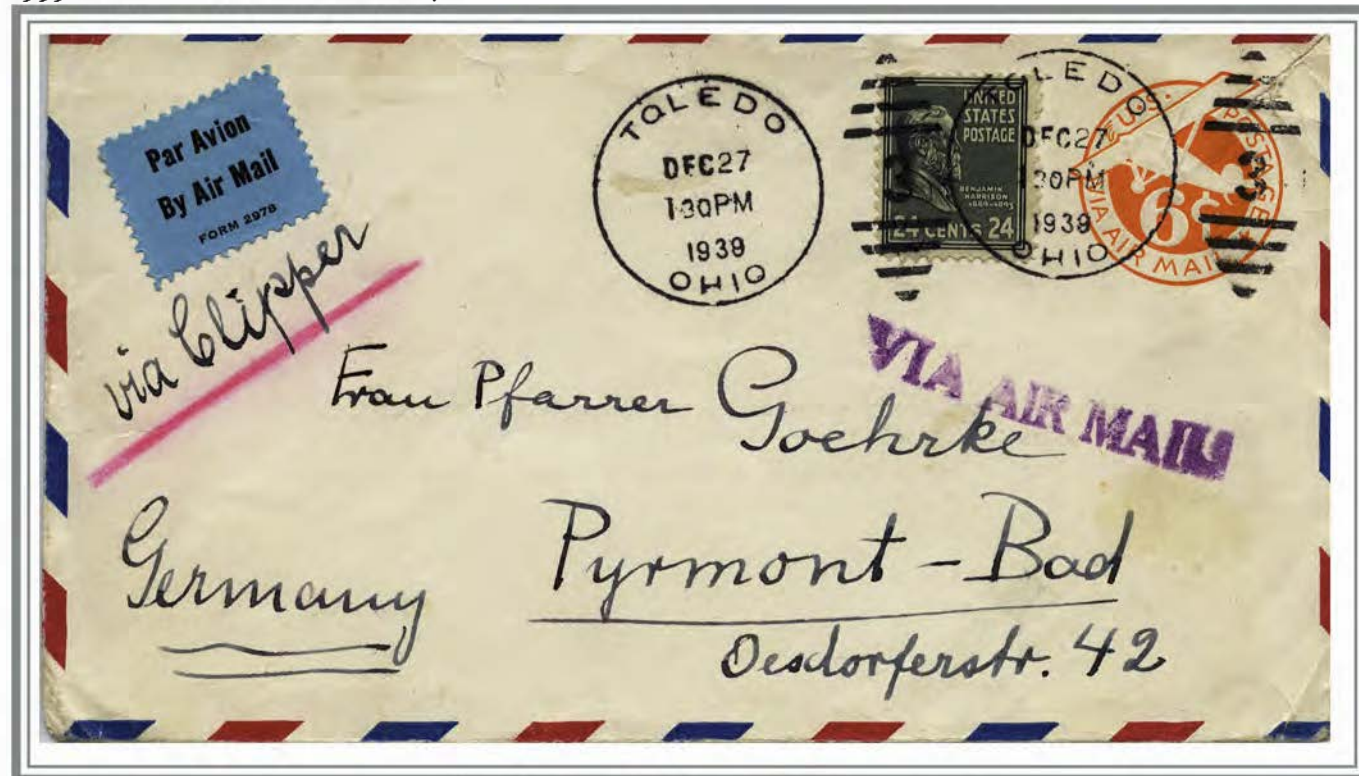 Par Avion
By Air Mail
FORM 2978
via Clipper
TOLEDO
DEC 27
1 30 PM
1939
OHIO
UNITED
STATES
POSTAGE
BENJAMIN
HARRISON
1889-1893
24 CENTS 24
3
TOLEDO
DEC 27
1 30 PM
1939
OHIO
3
U.S. POSTAGE
6¢
VIA AIR MAIL
VIA AIR MAIL
Frau Pfarrer Goehrke
Germany
Pyrmont - Bad
Oesdorferstr. 42